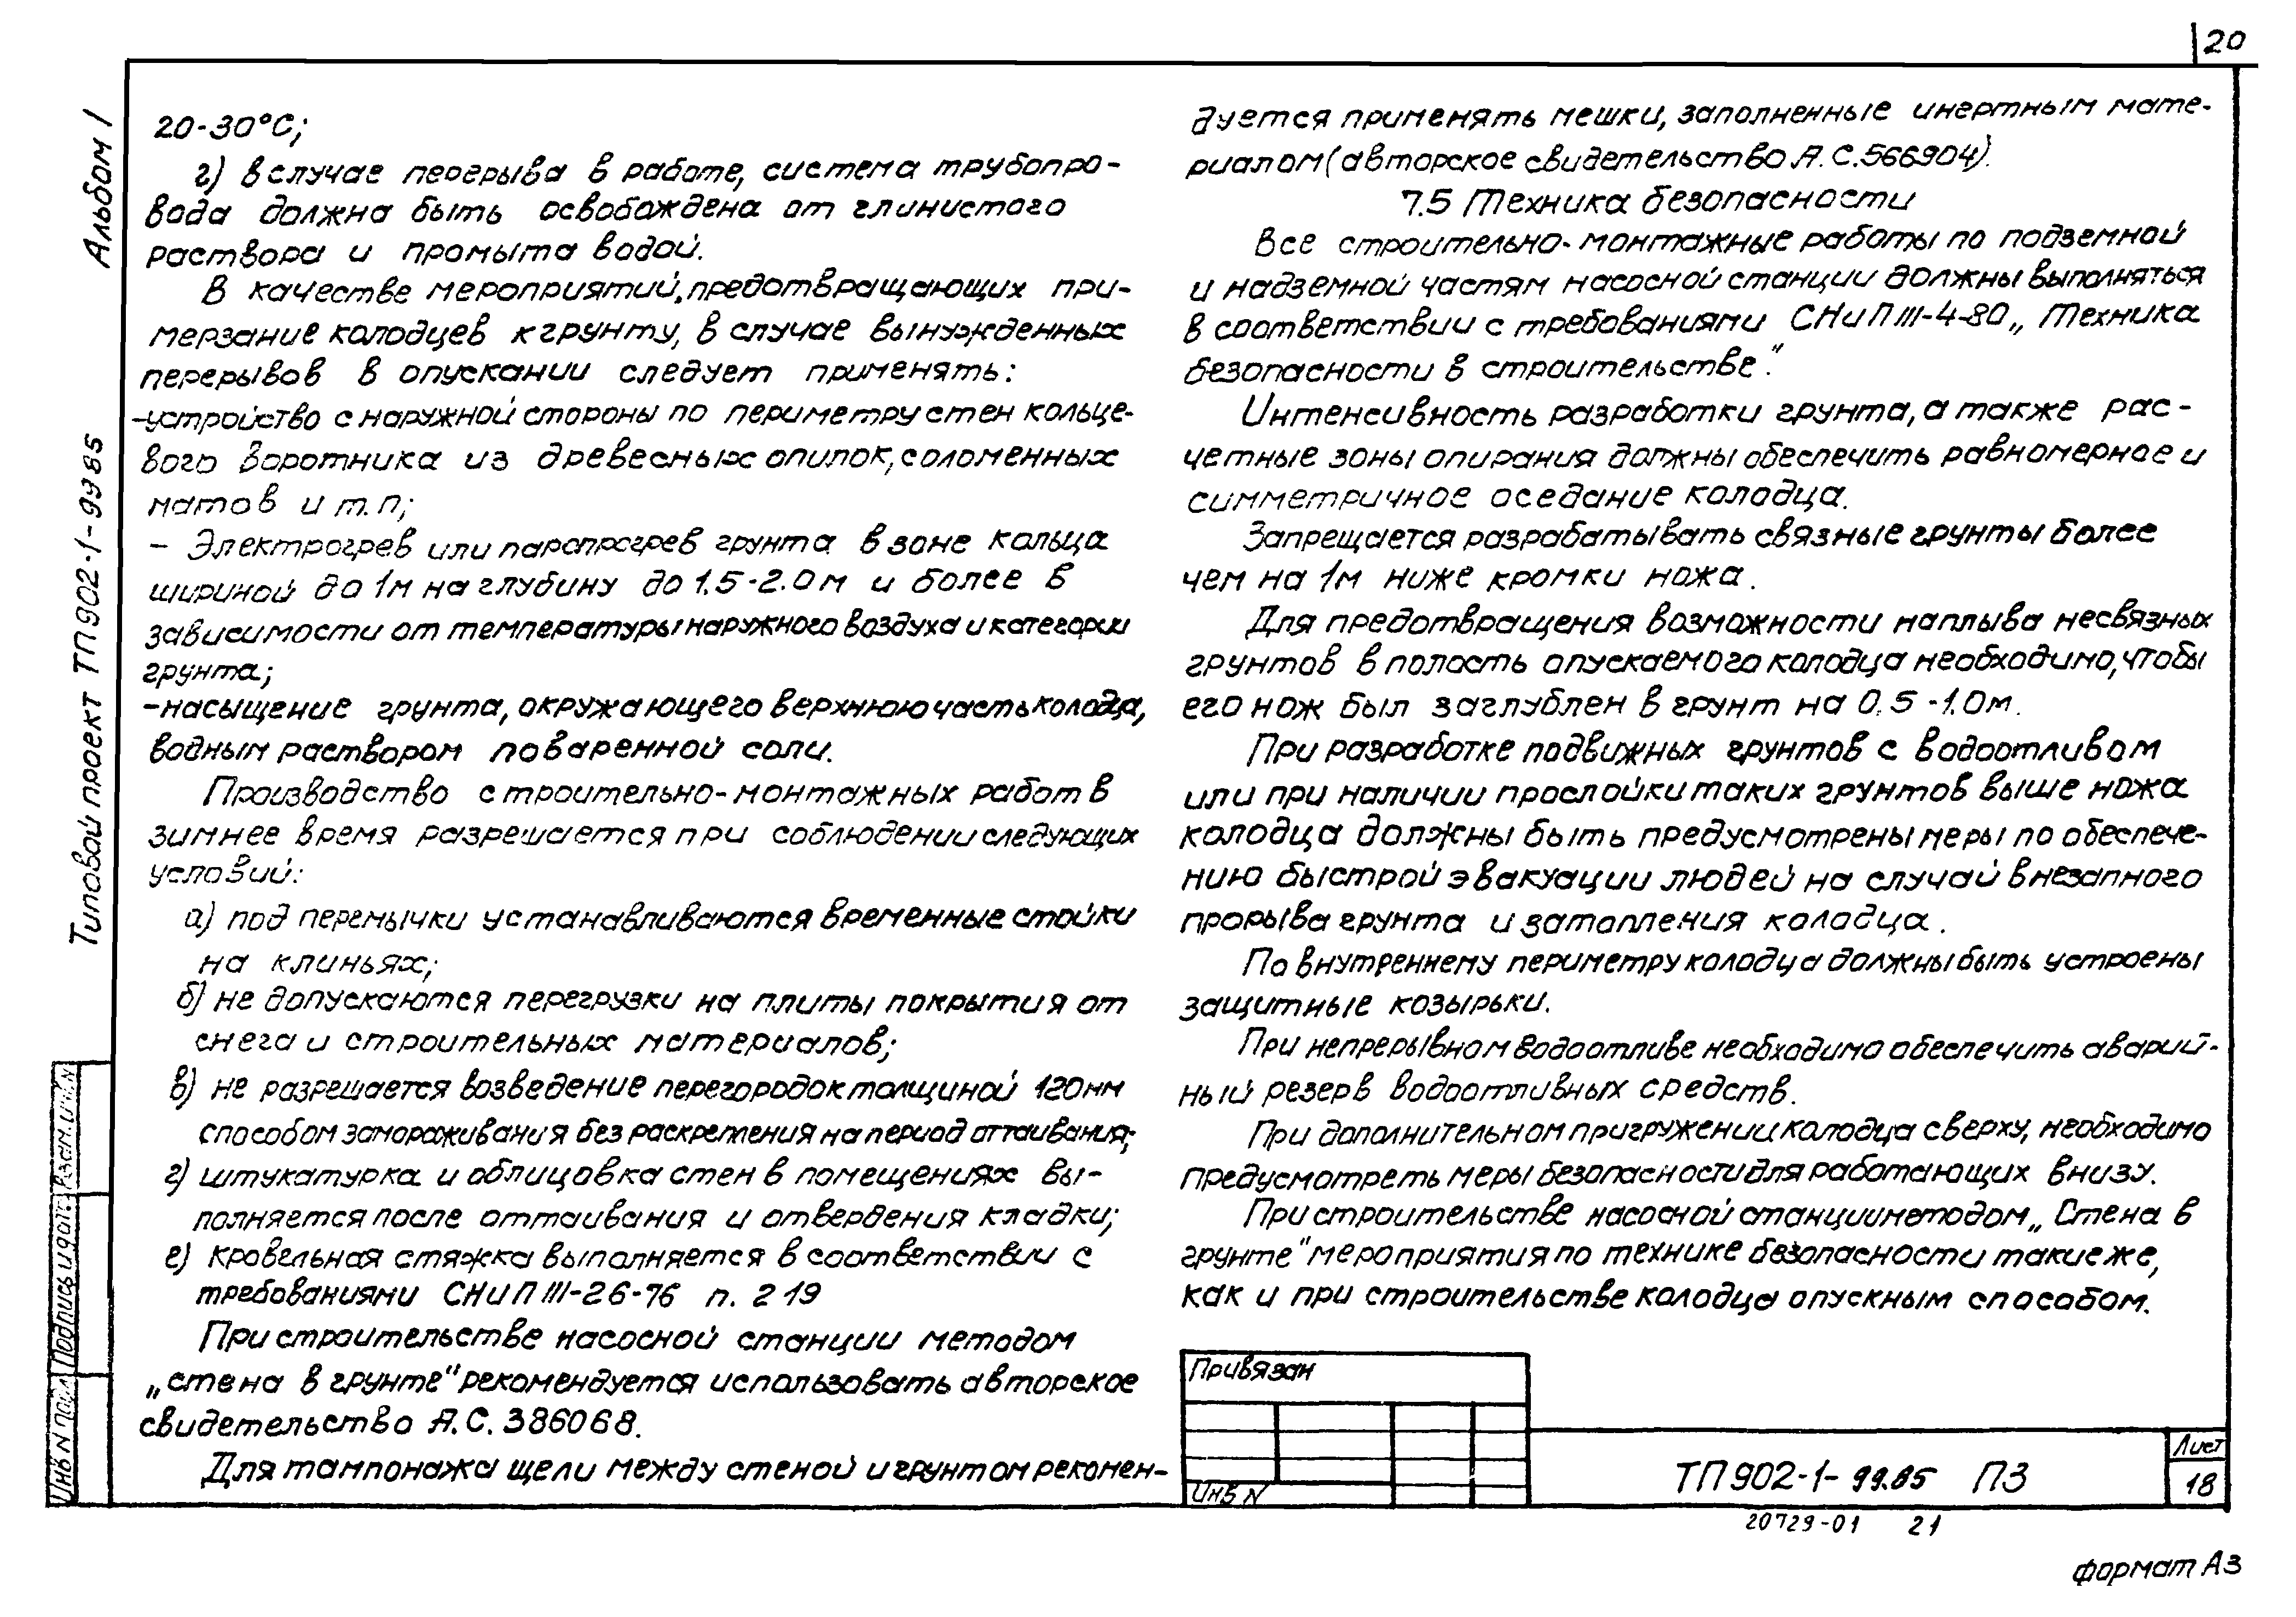 20
Альбом I
Типовой проект ТП 902-1-99.85
20-30°С;
г) в случае перерыва в работе, система трубопро-
вода должна быть освобождена от глинистого
раствора и промыта водой.
В качестве мероприятий, предотвращающих при-
мерзание колодцев к грунту, в случае вынужденных
перерывов в опускании следует применять:
-устройство с наружной стороны по периметру стен кольце-
вого воротника из древесных опилок, соломенных
матов и т.п;
- Электрогрев или паропрогрев грунта в зоне кольца
шириной до 1м на глубину до 1.5-2.0м и более в
зависимости от температуры наружного воздуха и категории
грунта;
-насыщение грунта, окружающего верхнюю часть колодца,
водным раствором поваренной соли.
Производство строительно-монтажных работ в
зимнее время разрешается при соблюдении следующих
условий:
а) под перемычки устанавливаются временные стойки
на клиньях;
б) не допускаются перегрузки на плиты покрытия от
снега и строительных материалов;
в) не разрешается возведение перегородок толщиной 120мм
способом замораживания без раскрепления на период оттаивания;
г) штукатурка и облицовка стен в помещениях вы-
полняется после оттаивания и отвердения кладки;
е) кровельная стяжка выполняется в соответствии с
требованиями СНиП III-26-76 п. 2 19
При строительстве насосной станции методом
„стена в грунте" рекомендуется использовать авторское
свидетельство А.С. 386068.
Для тампонажа щели между стеной и грунтом рекомен-
дуется применять мешки, заполненные инертным мате-
риалом (авторское свидетельство А.С.566904).
7.5 Техника безопасности
Все строительно-монтажные работы по подземной
и надземной частям насосной станции должны выполняться
в соответствии с требованиями СНиП III-4-80 „Техника
безопасности в строительстве".
Интенсивность разработки грунта, а также рас-
четные зоны опирания должны обеспечить равномерное и
симметричное оседание колодца.
Запрещается разрабатывать связные грунты более
чем на 1м ниже кромки ножа.
Для предотвращения возможности наплыва несвязных
грунтов в полость опускаемого колодца необходимо, чтобы
его нож был заглублен в грунт на 0.5-1.0м.
При разработке подвижных грунтов с водоотливом
или при наличии прослойки таких грунтов выше ножа
колодца должны быть предусмотрены меры по обеспече-
нию быстрой эвакуации людей на случай внезапного
прорыва грунта и затопления колодца.
По внутреннему периметру колодца должны быть устроены
защитные козырьки.
При непрерывном водоотливе необходимо обеспечить аварий-
ный резерв водоотливных средств.
При дополнительном пригружении колодца сверху, необходимо
предусмотреть меры безопасности для работающих внизу.
При строительстве насосной станции методом „Стена в
грунте" мероприятия по технике безопасности такие же,
как и при строительстве колодца опускным способом.
Привязан
Инв N
ТП 902-1-99.85 ПЗ
Лист
18
Инв N подл
Подпись и дата
Взам. инв. N
20729-01 21
формат А3